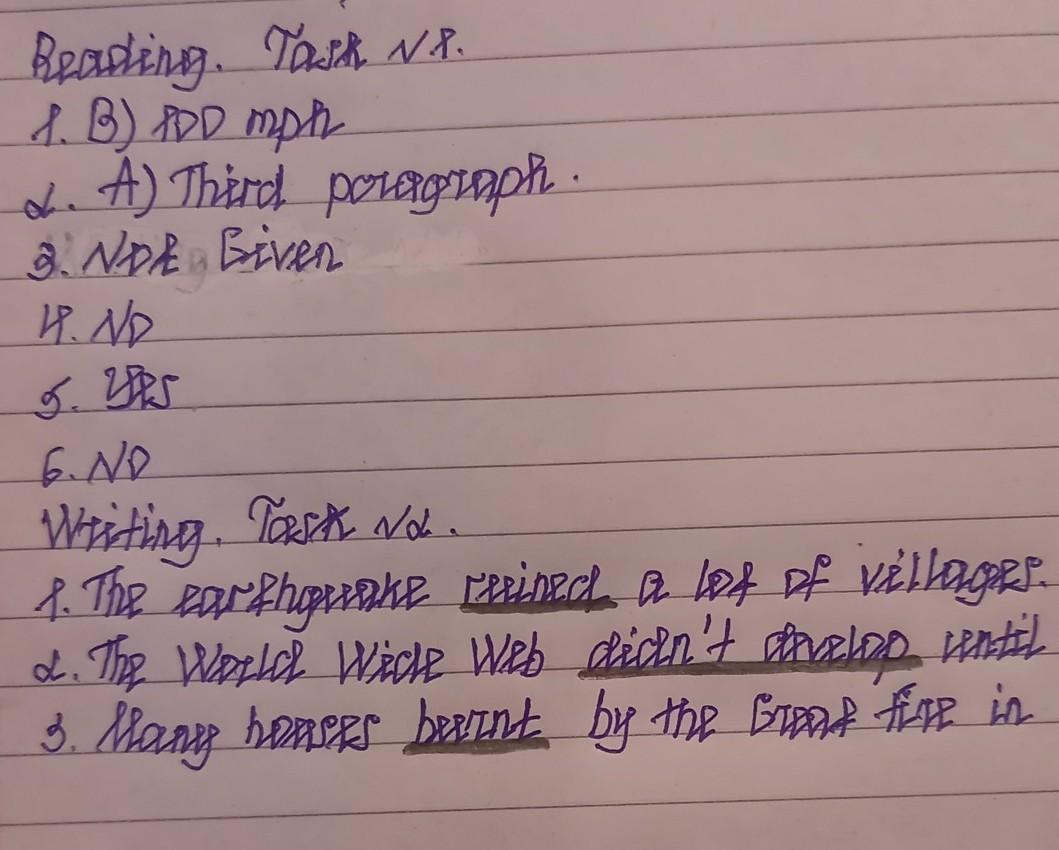 Reading. Task №1.
1. B) 100 mph
2. A) Third paragraph.
3. Not Given
4. NO
5. Yes
6. NO
Writing. Task №2.
1. The earthquake ruined a lot of villages.
2. The World Wide Web didn't develop until
3. Many houses burnt by the Great fire in